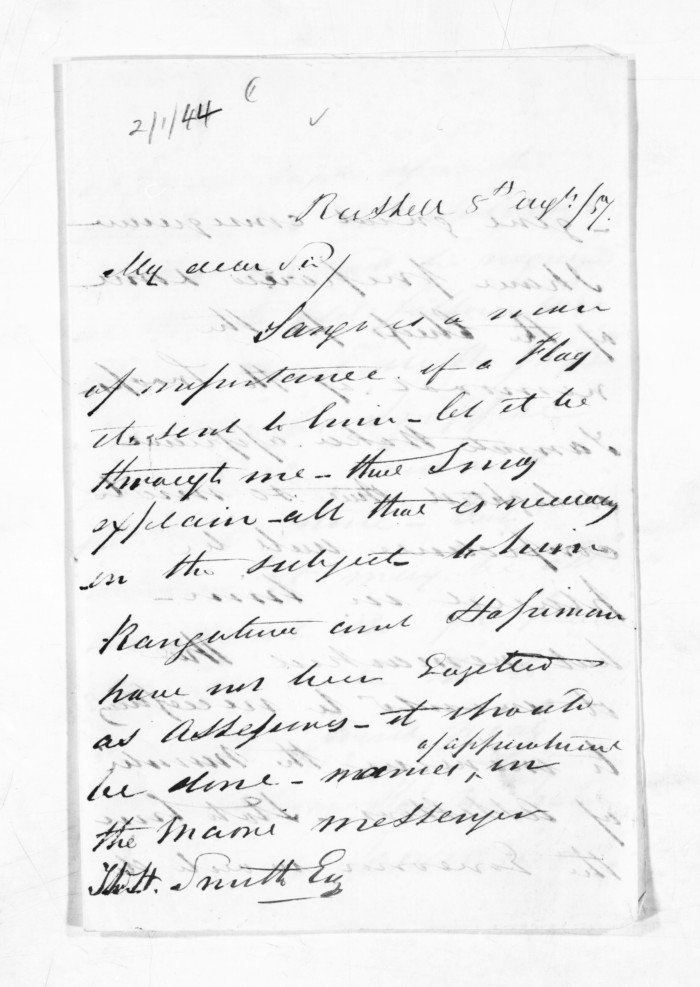 2/1/44
Russell 5th Augt. /57.
My dear Sir/
Tango is a man
of importance. if a Flag
is sent to him – let it be
through me – that I may
explain – all that is necessary
on the subject to him
Rangatira and Hapimana
have not been Gazetted
as Assessors – it should
of appointment
be done – names, in
the Maori Messenger
Th. H. Smith Esq